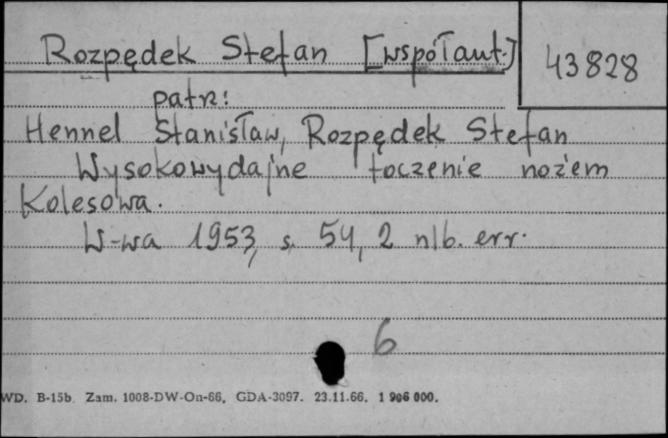 Rozpędek Stefan [współaut.]
43828
patrz:
Hennel Stanisław, Rozpędek Stefan
Wysokowydajne toczenie nożem
Kolesowa.
W-wa 1953, s. 54, 2 nlb. err.
6
WD. B-15b. Zam. 1008-DW-On-66. GDA-3097. 23.11.66. 1 906 000.